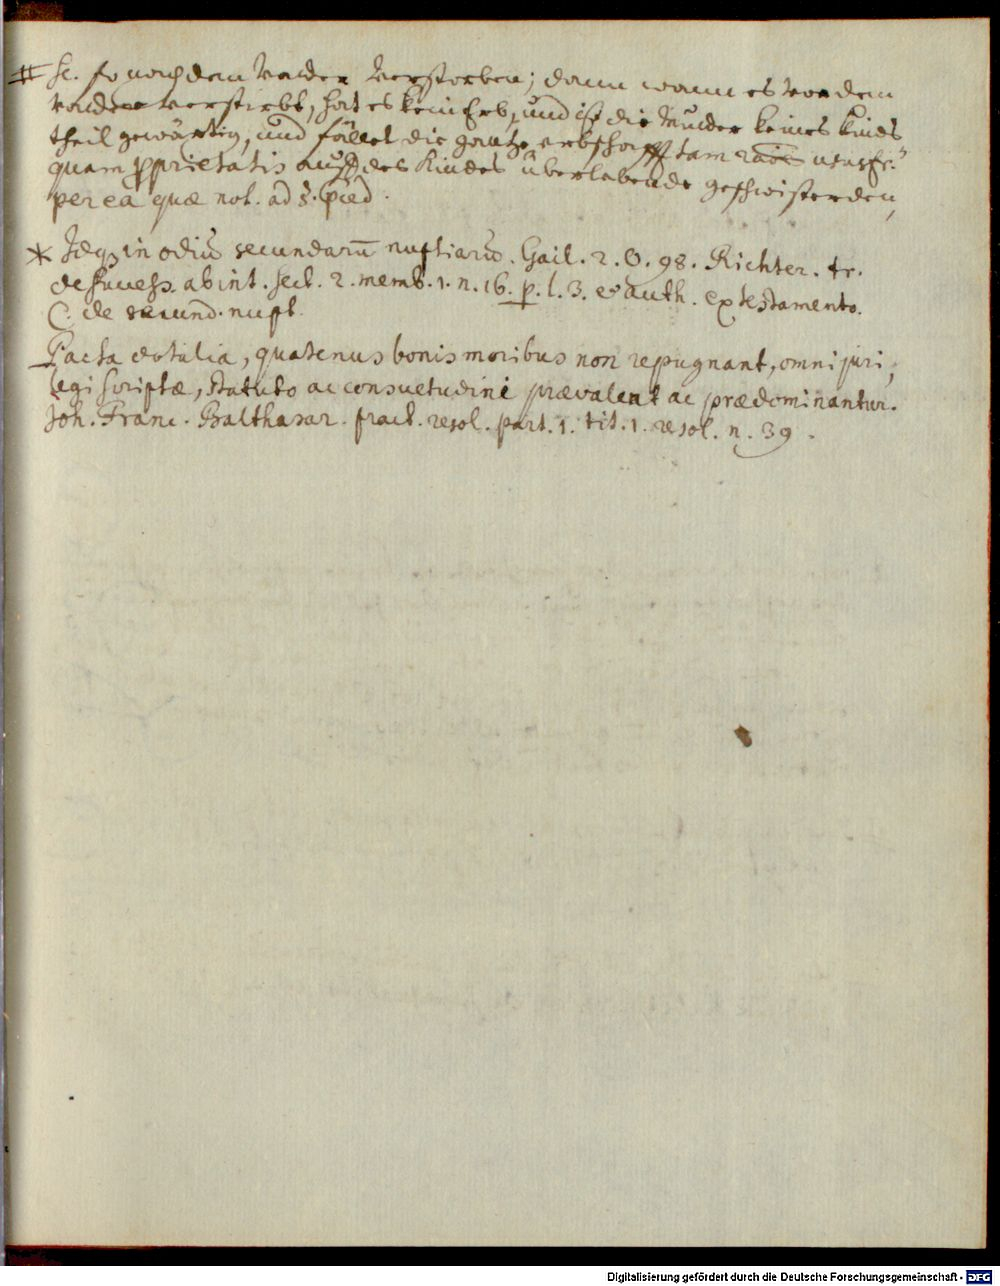 # sc. so nach dem Vatter verstorben; dann wann es vor dem
Vatter verstirbt, hat es kein Erb, und ist die Mutter keines Kinds
theil gewärtig, und fället die gantze erbschafft tam raōe ususfr.
quam pprietatis auff des Kindes überlebende geschwisterden,
per ea quæ not. ad §. præd.
* Idq₃ in odiū secundarū nuptiarū. Gail. 2. O. 98. Richter. tr.
de success. ab int. sect. 2. memb. 1. n. 16. p. l. 3. et auth. ex testamento.
C. de secund. nupt.
Pacta dotalia, quatenus bonis moribus non repugnant, omni juri,
legi scriptæ, statuto ac consuetudini prævalent ac prædominantur.
Joh. Franc. Balthasar. pract. resol. part. 1. tit. 1. resol. n. 39.
Digitalisierung gefördert durch die Deutsche Forschungsgemeinschaft - DFG